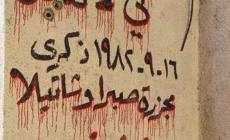 في
١٦-٩-١٩٨٢ ذكرى
مجزرة صبرا وشاتيلا